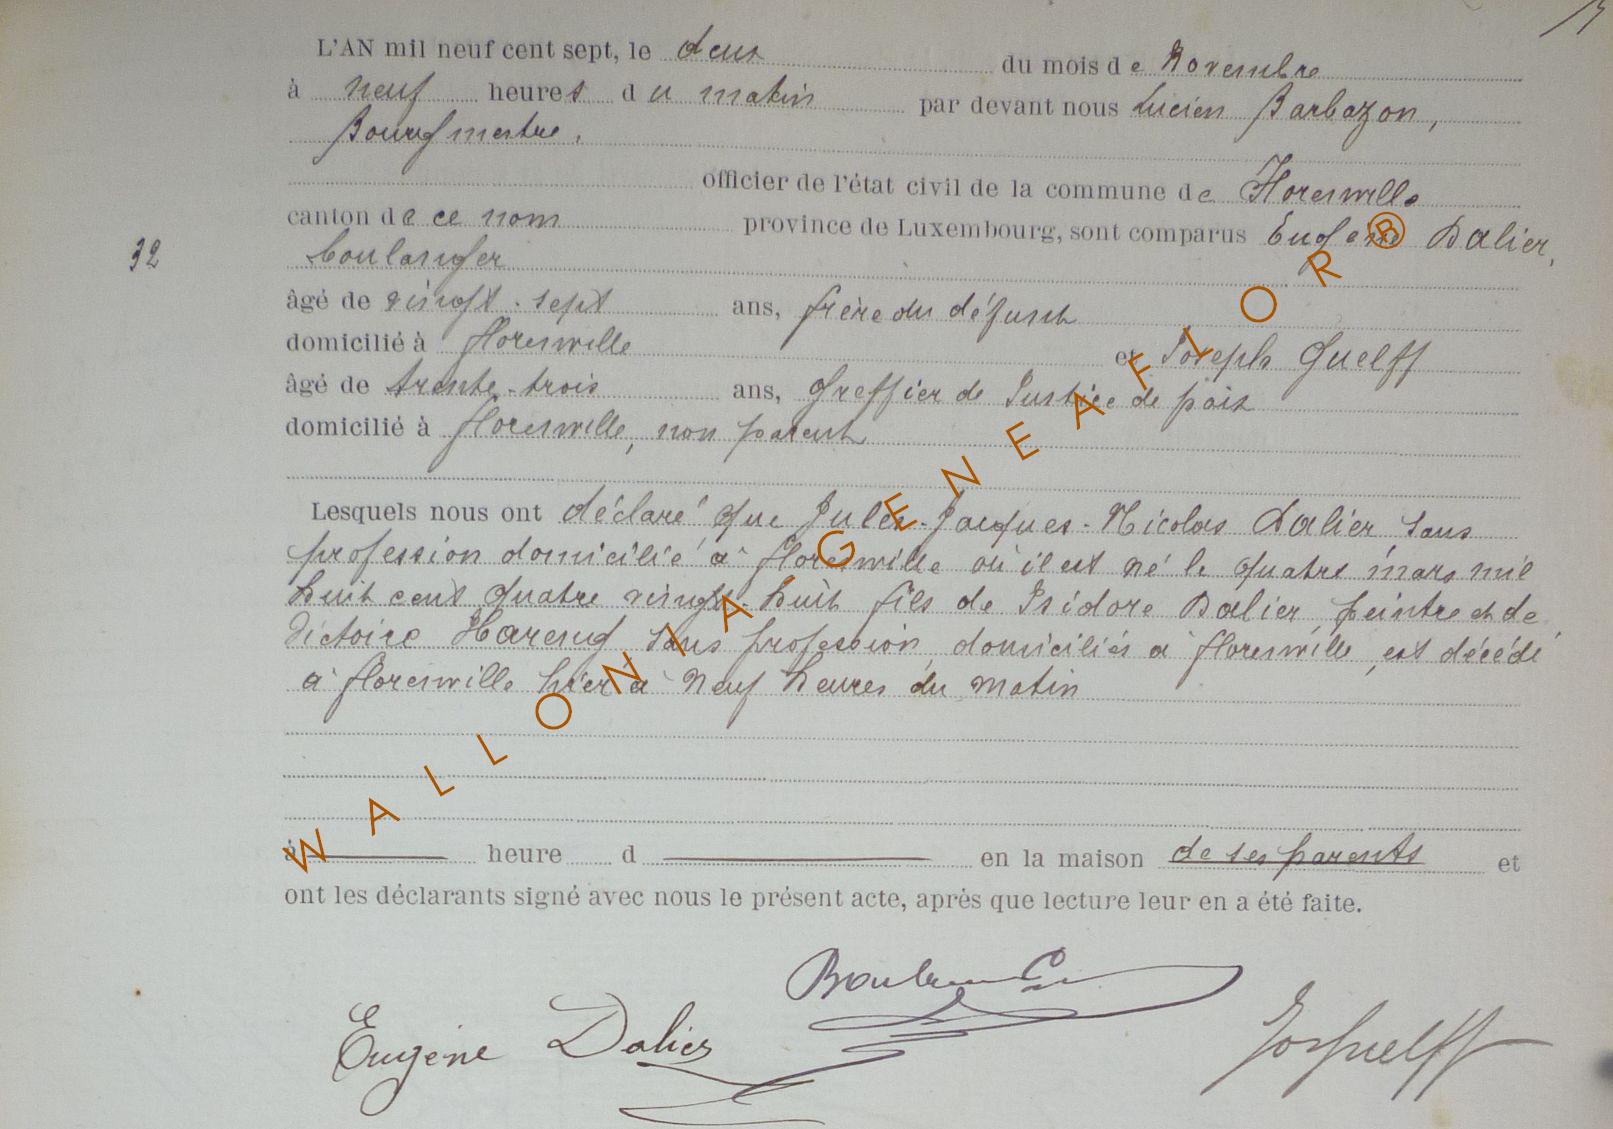 L'AN mil neuf cent sept, le deux du mois de Novembre
à neuf heures du matin par devant nous Lucien Barbazon,
Bourgmestre.
officier de l'état civil de la commune de Florenville
canton de ce nom province de Luxembourg, sont comparus Eugene Dalier,
boulanger
32
âgé de vingt-sept ans, frère du défunt
domicilié à florenville et Joseph Guelff
âgé de trente-trois ans, Greffier de Justice de paix
domicilié à florenville, non parent
Lesquels nous ont déclaré que Jules-Jacques-Nicolas Dalier sans
profession domicilié à florenville où il est né le quatre mars mil
huit cent quatre vingt-huit fils de Isidore Dalier, peintre et de
Victoire Hareng sans profession, domiciliés à florenville, est décédé
à florenville hier à neuf heures du matin
à heure d en la maison de ses parents et
ont les déclarants signé avec nous le présent acte, après que lecture leur en a été faite.
Eugène Dalier
Jos Guelff
WALLONIA GENEAFLOR®